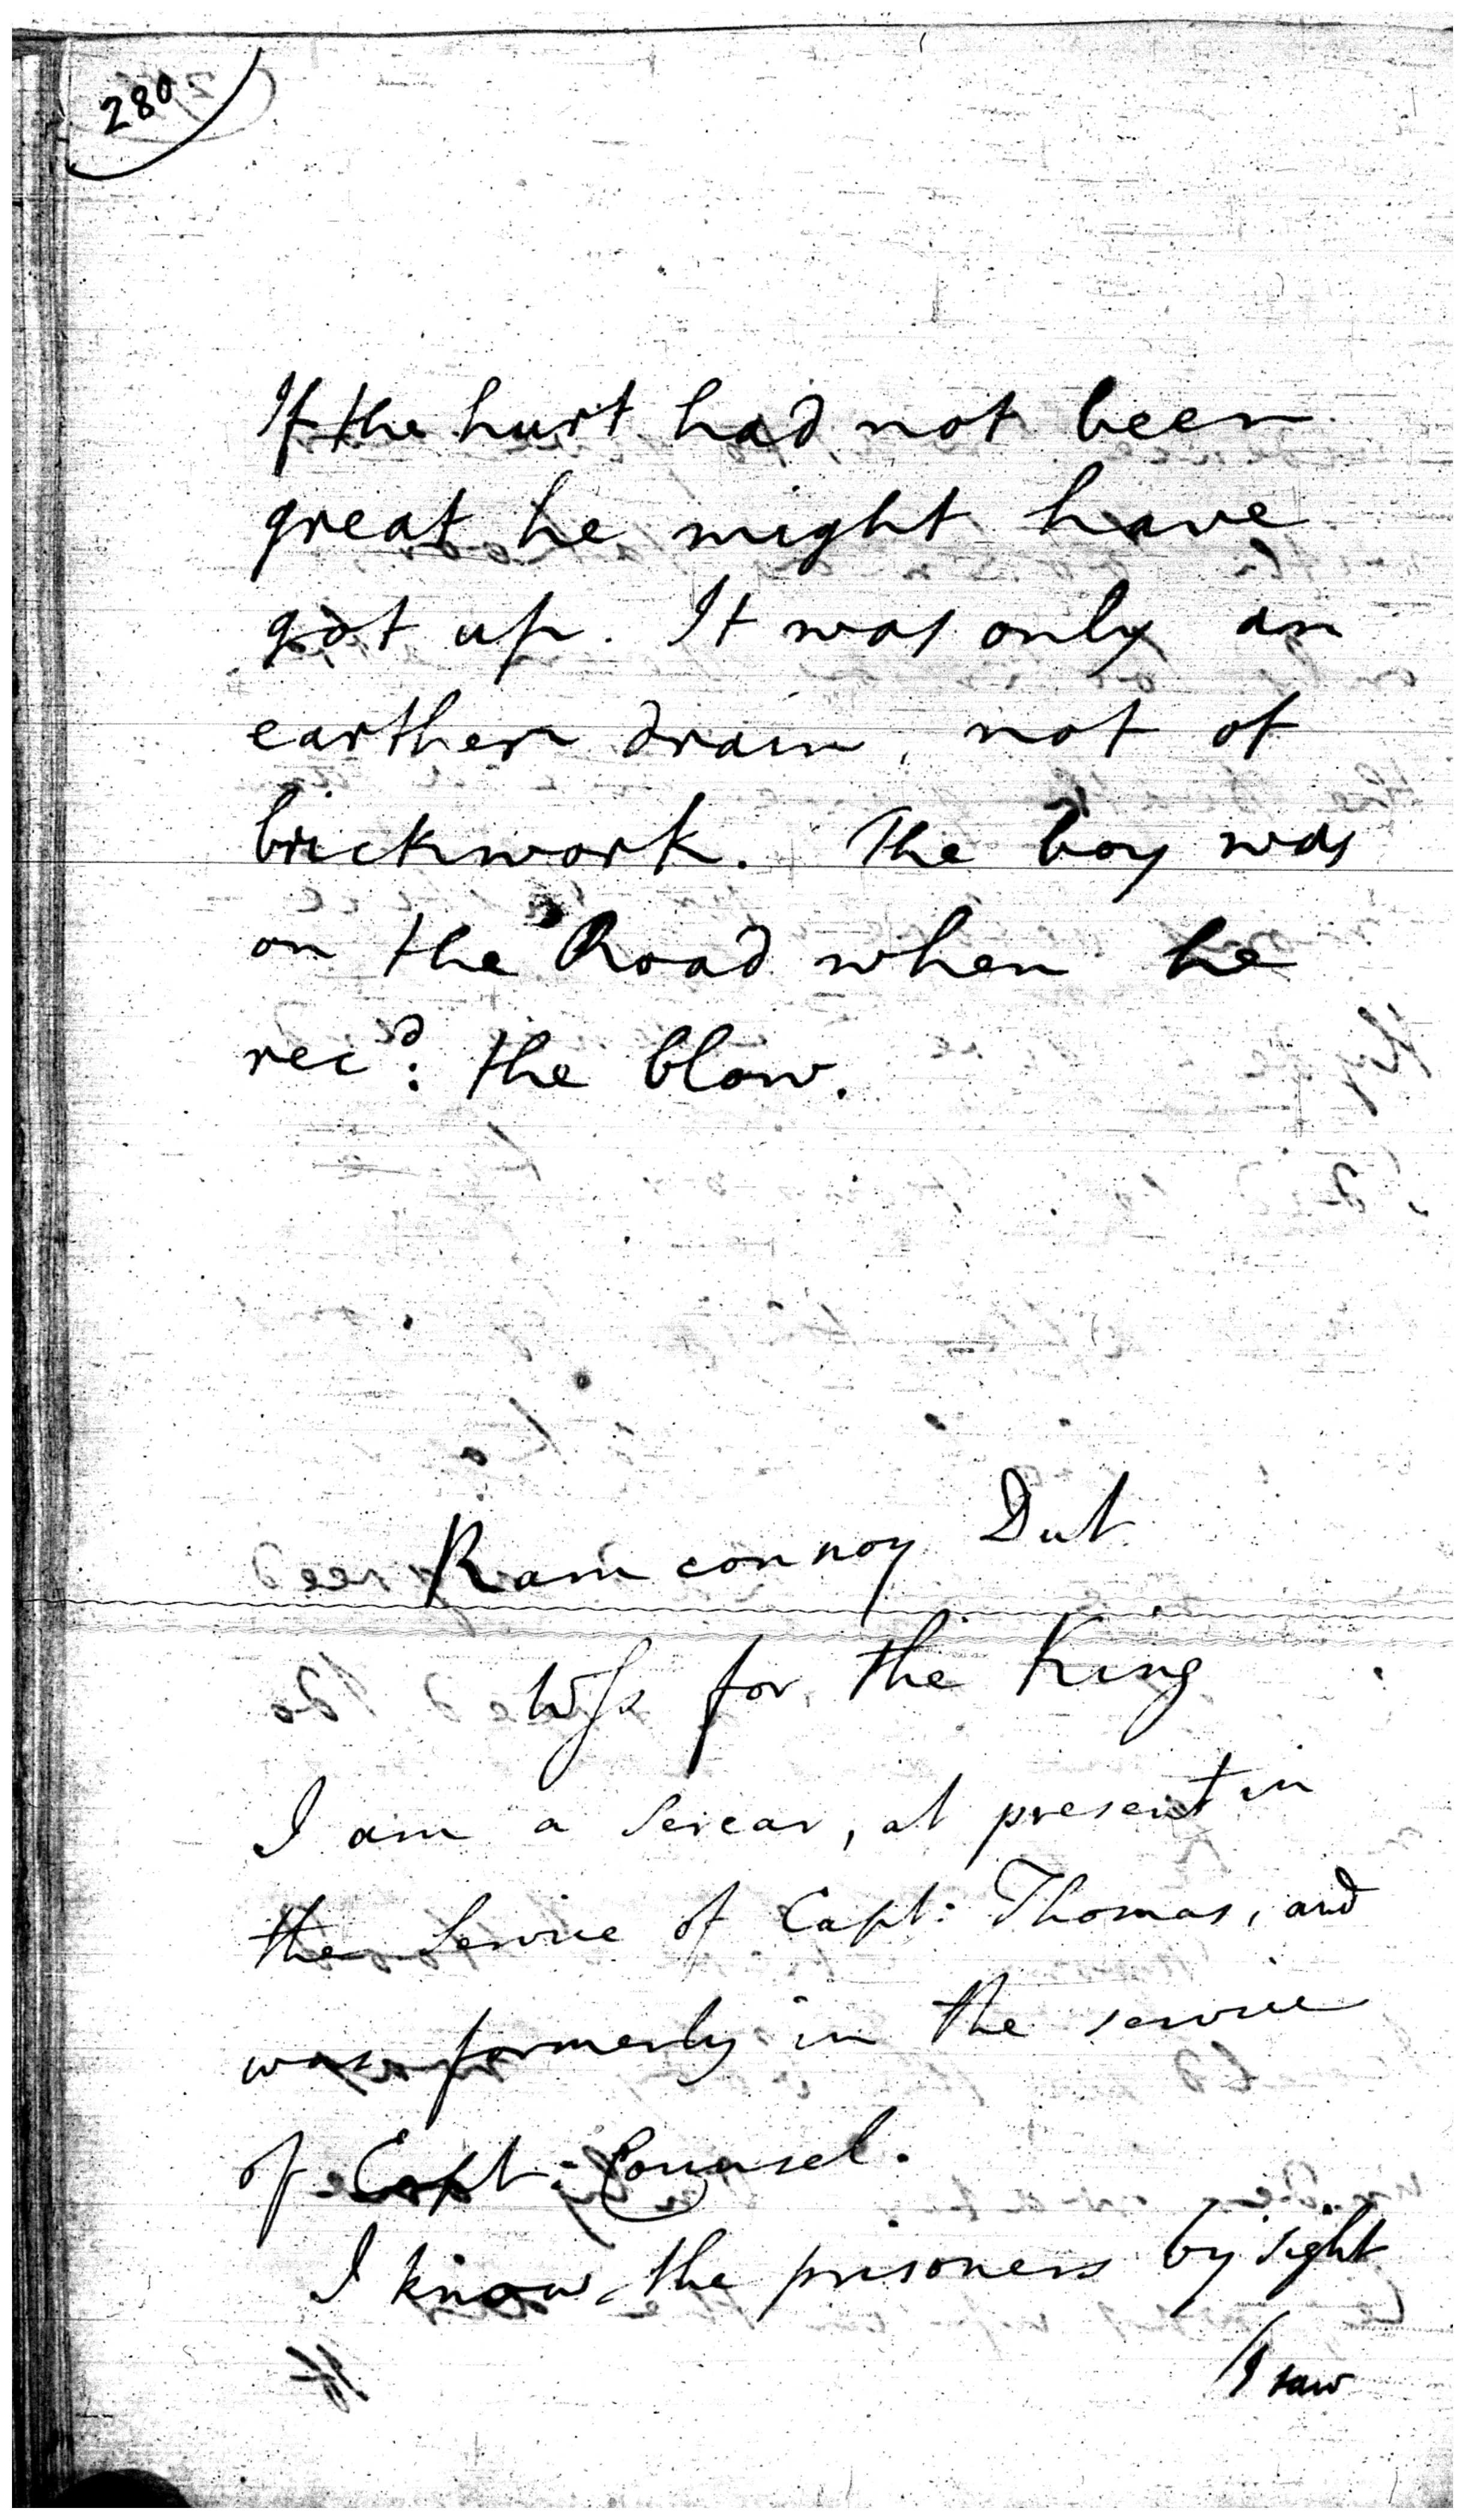 280.
If the hurt had not been
great he might have
got up. It was only an
earthen drain, not of
brickwork. The boy was
on the Road when he
rec^d: the blow.
Ramconnoy Dut
Wss for the King
I am a Sircar, at present in
the Service of Capt: Thomas, and
was formerly in the service
of Capt: Counsel.
I know the prisoners by sight
/I saw